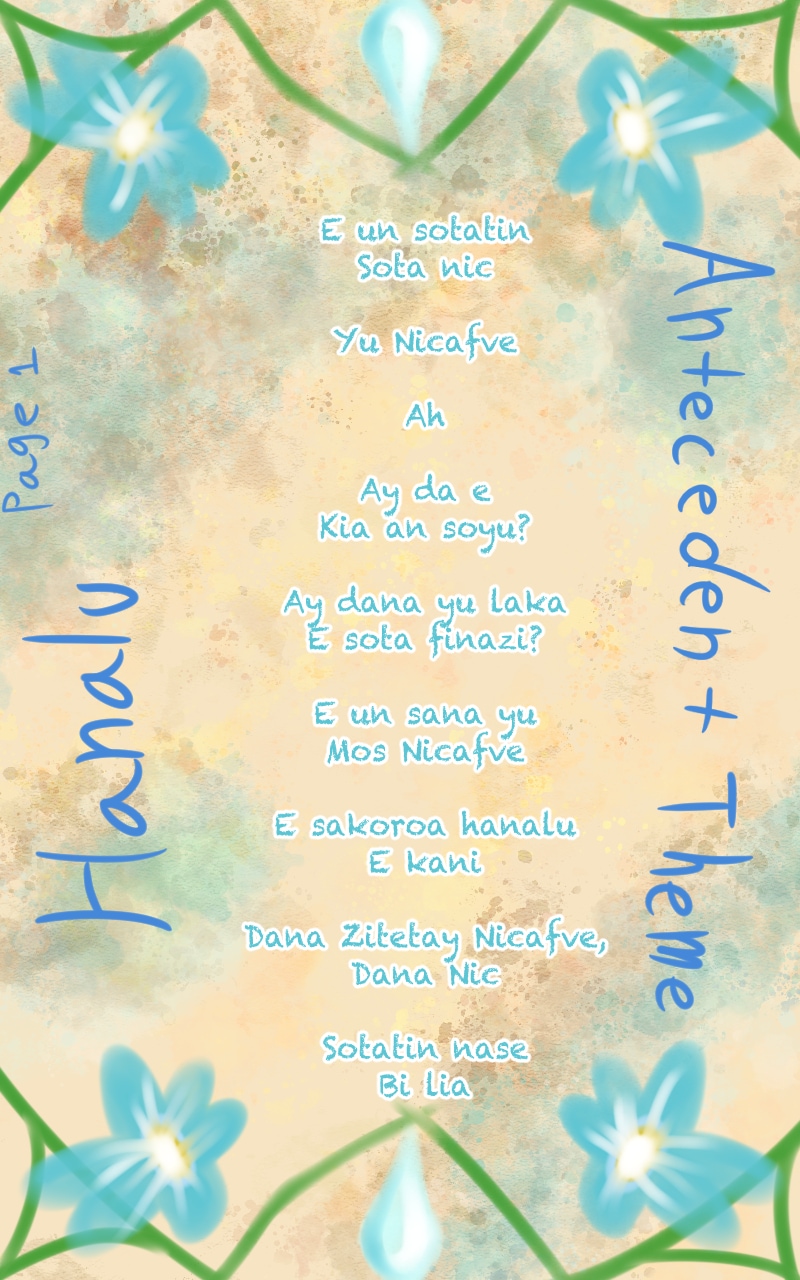 Hanalu
Page 1
E un sotatin
Sota nic
Yu Nicafve
Ah
Ay da e
Kia an soyu?
Ay dana yu laka
E sota finazi?
E un sana yu
Mos Nicafve
E sakoroa hanalu
E kani
Dana Zitetay Nicafve,
Dana Nic
Sotatin nase
Bi lia
Antecedent Theme